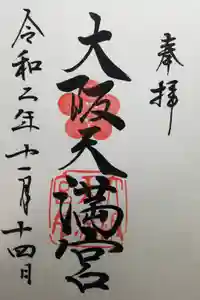 奉拝
大阪天満宮
令和二年十一月十四日